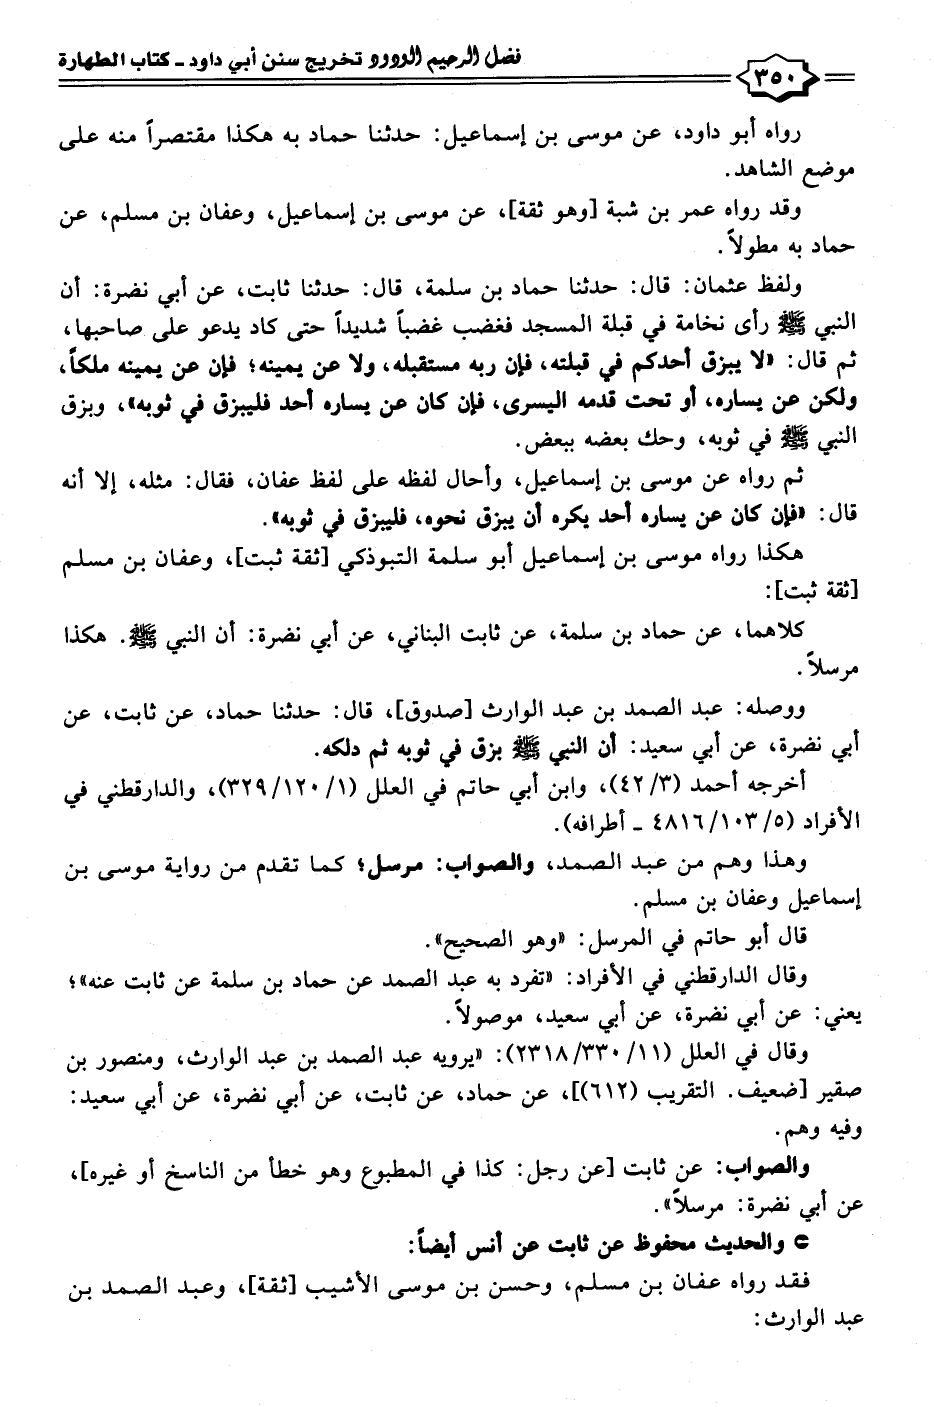 ٣٥٠ فضل الرحيم الودود تخريج سنن أبي داود ـ كتاب الطهارة
رواه أبو داود، عن موسى بن إسماعيل: حدثنا حماد به هكذا مقتصراً منه على
موضع الشاهد.
وقد رواه عمر بن شبة [وهو ثقة]، عن موسى بن إسماعيل، وعفان بن مسلم، عن
حماد به مطولاً.
ولفظ عثمان: قال: حدثنا حماد بن سلمة، قال: حدثنا ثابت، عن أبي نضرة: أن
النبي ﷺ رأى نخامة في قبلة المسجد فغضب غضباً شديداً حتى كاد يدعو على صاحبها،
ثم قال: «لا يبزق أحدكم في قبلته، فإن ربه مستقبله، ولا عن يمينه؛ فإن عن يمينه ملكاً،
ولكن عن يساره، أو تحت قدمه اليسرى، فإن كان عن يساره أحد فليبزق في ثوبه»، وبزق
النبي ﷺ في ثوبه، وحك بعضه ببعض.
ثم رواه عن موسى بن إسماعيل، وأحال لفظه على لفظ عفان، فقال: مثله، إلا أنه
قال: «فإن كان عن يساره أحد يكره أن يبزق نحوه، فليبزق في ثوبه».
هكذا رواه موسى بن إسماعيل أبو سلمة التبوذكي [ثقة ثبت]، وعفان بن مسلم
[ثقة ثبت]:
كلاهما، عن حماد بن سلمة، عن ثابت البناني، عن أبي نضرة: أن النبي ﷺ. هكذا
مرسلاً.
ووصله: عبد الصمد بن عبد الوارث [صدوق]، قال: حدثنا حماد، عن ثابت، عن
أبي نضرة، عن أبي سعيد: أن النبي ﷺ بزق في ثوبه ثم دلكه.
أخرجه أحمد (٣/ ٤٢)، وابن أبي حاتم في العلل (١/ ١٢٠/ ٣٢٩)، والدارقطني في
الأفراد (٥/ ١٠٣/ ٤٨١٦ ـ أطرافه).
وهذا وهم من عبد الصمد، والصواب: مرسل؛ كما تقدم من رواية موسى بن
إسماعيل وعفان بن مسلم.
قال أبو حاتم في المرسل: «وهو الصحيح».
وقال الدارقطني في الأفراد: «تفرد به عبد الصمد عن حماد بن سلمة عن ثابت عنه»؛
يعني: عن أبي نضرة، عن أبي سعيد، موصولاً.
وقال في العلل (١١/ ٣٣٠/ ٢٣١٨): «يرويه عبد الصمد بن عبد الوارث، ومنصور بن
صقير [ضعيف. التقريب (٦١٢)]، عن حماد، عن ثابت، عن أبي نضرة، عن أبي سعيد:
وفيه وهم.
والصواب: عن ثابت [عن رجل: كذا في المطبوع وهو خطأ من الناسخ أو غيره]،
عن أبي نضرة: مرسلاً».
والحديث محفوظ عن ثابت عن أنس أيضاً:
فقد رواه عفان بن مسلم، وحسن بن موسى الأشيب [ثقة]، وعبد الصمد بن
عبد الوارث: